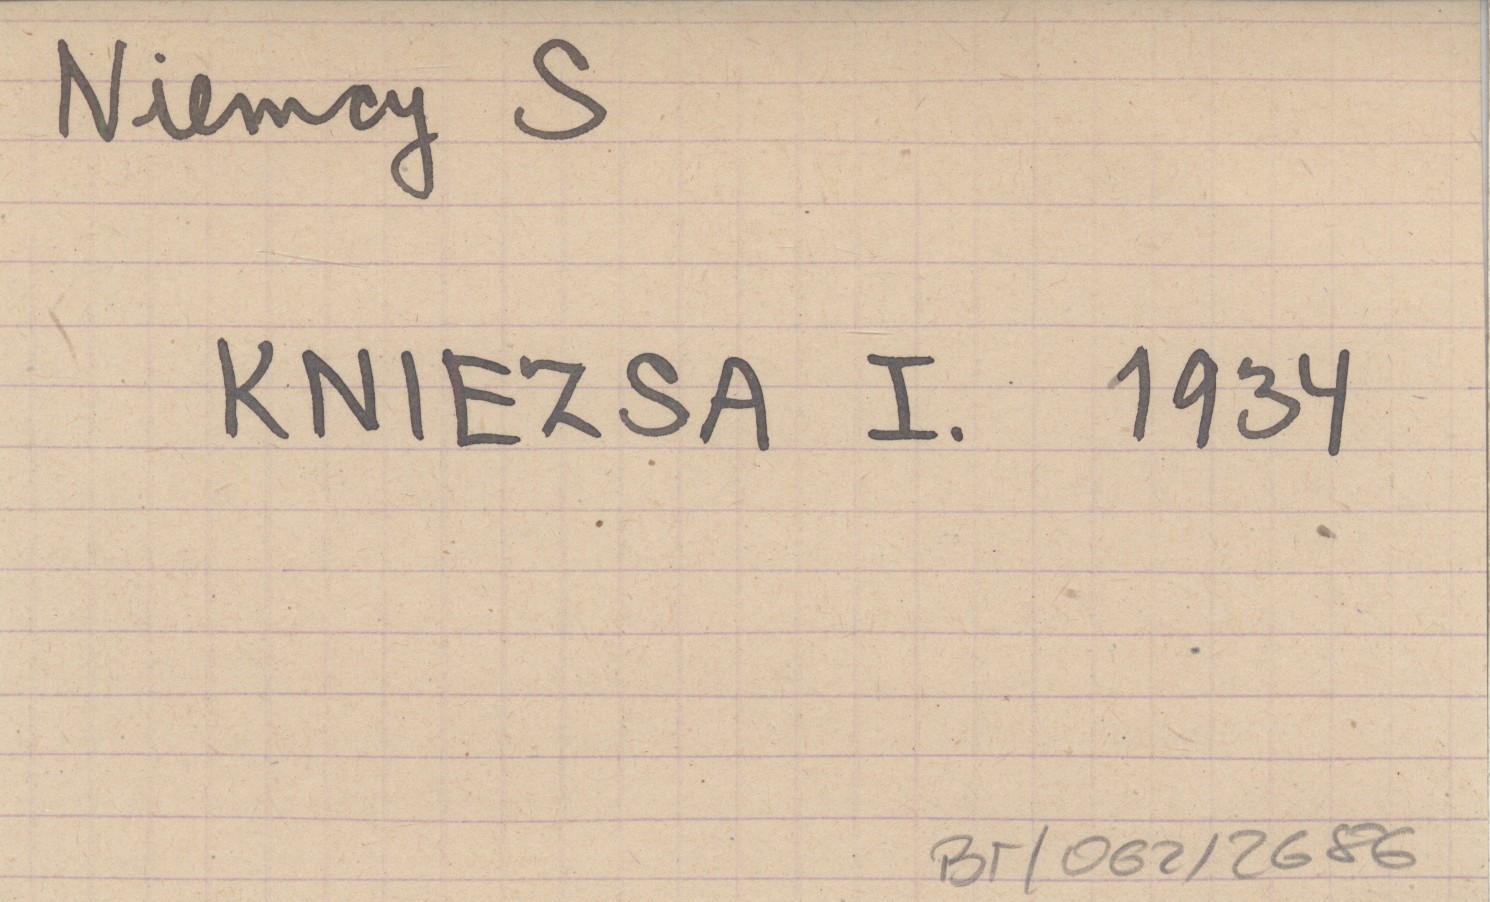 Niemcy S
KNIEZSA I. 1934
BT/062/2686